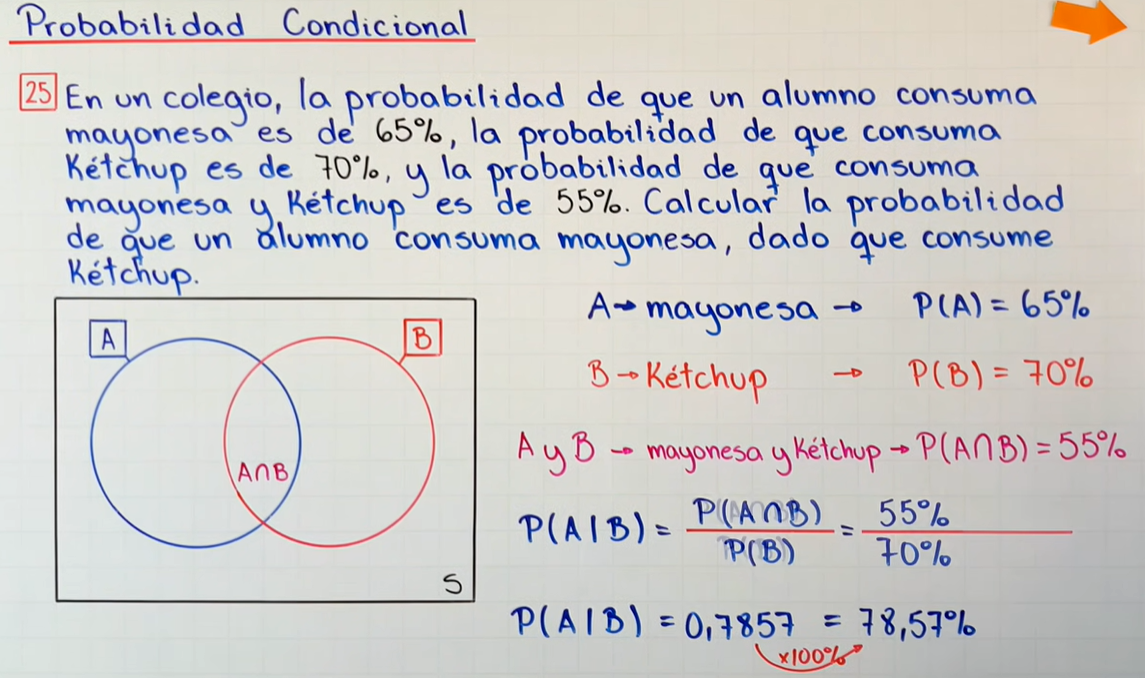 Probabilidad Condicional
25 En un colegio, la probabilidad de que un alumno consuma
mayonesa es de 65%, la probabilidad de que consuma
Kétchup es de 70%, y la probabilidad de que consuma
mayonesa y Kétchup es de 55%. Calcular la probabilidad
de que un alumno consuma mayonesa, dado que consume
Kétchup.
A → mayonesa → P(A) = 65%
B → Kétchup → P(B) = 70%
A y B → mayonesa y Kétchup → P(A∩B) = 55%
P(A|B) = P(A∩B) / P(B) = 55% / 70%
P(A|B) = 0,7857 = 78,57%
×100%
A
B
A∩B
S